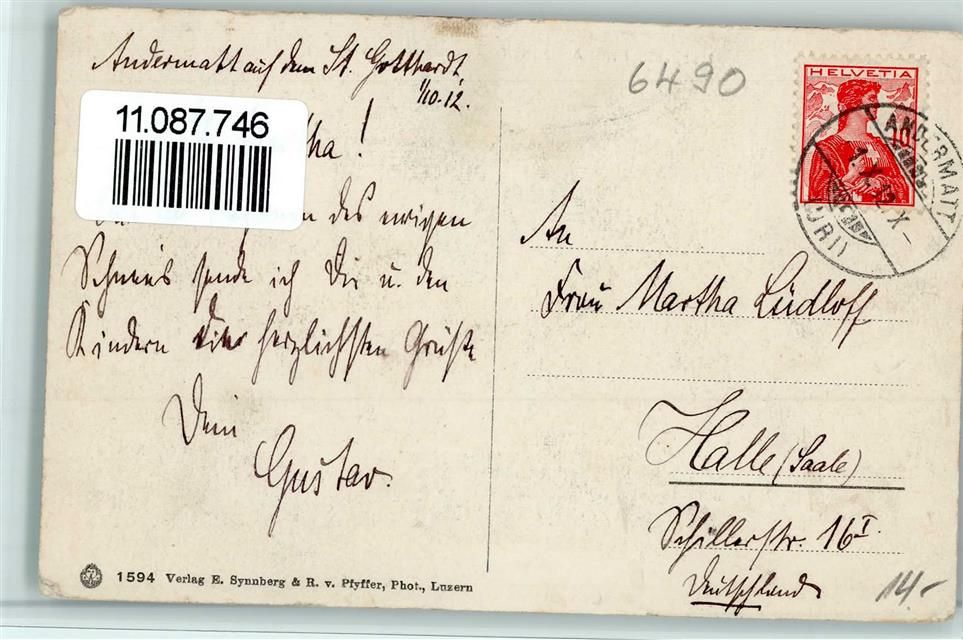 Andermatt auf dem St. Gotthardt,
1/10.12.
11.087.746
tha!
n des ewigen
Schnees sende ich Dir u. den
Kindern die herzlichsten Grüße
Dein
Gustav.
1594 Verlag E. Synnberg & R. v. Pfyffer, Phot., Luzern
6490
HELVETIA
10
ANDERMATT
(URI)
An
Frau Martha Lüdloff
Halle (Saale)
Schillerstr. 16 I.
Deutschland
14.-